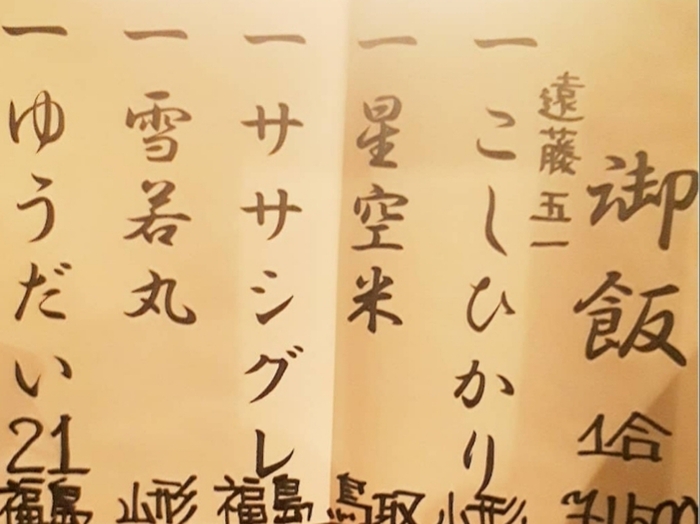 御飯 1合 ¥1500
遠藤五一
一 こしひかり 山形
一 星空米 鳥取
一 ササシグレ 福島
一 雪若丸 山形
一 ゆうだい21 福島